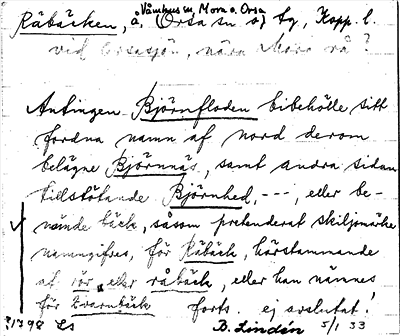 Våmhus m, Mora o. Orsa
Råbäcken, å, (Orsa sn o) tg, Kopp. l.
vid Orsasjön, nära Mora rå?
Antingen Björnfloden bibehölle sitt
fordna namn af nord derom
belägne Björnnäs, samt andra sidan
tillstötande Björnhed, ---, eller be-
nämde bäck, såsom pretenderat skiljomärke
namngifves, för Råbäck, härstammande
af rör eller råbäck, eller han nämnes
för kvarnbäck forts. ej avslutat!
1798 Ls
D. Lindén 5/1 33